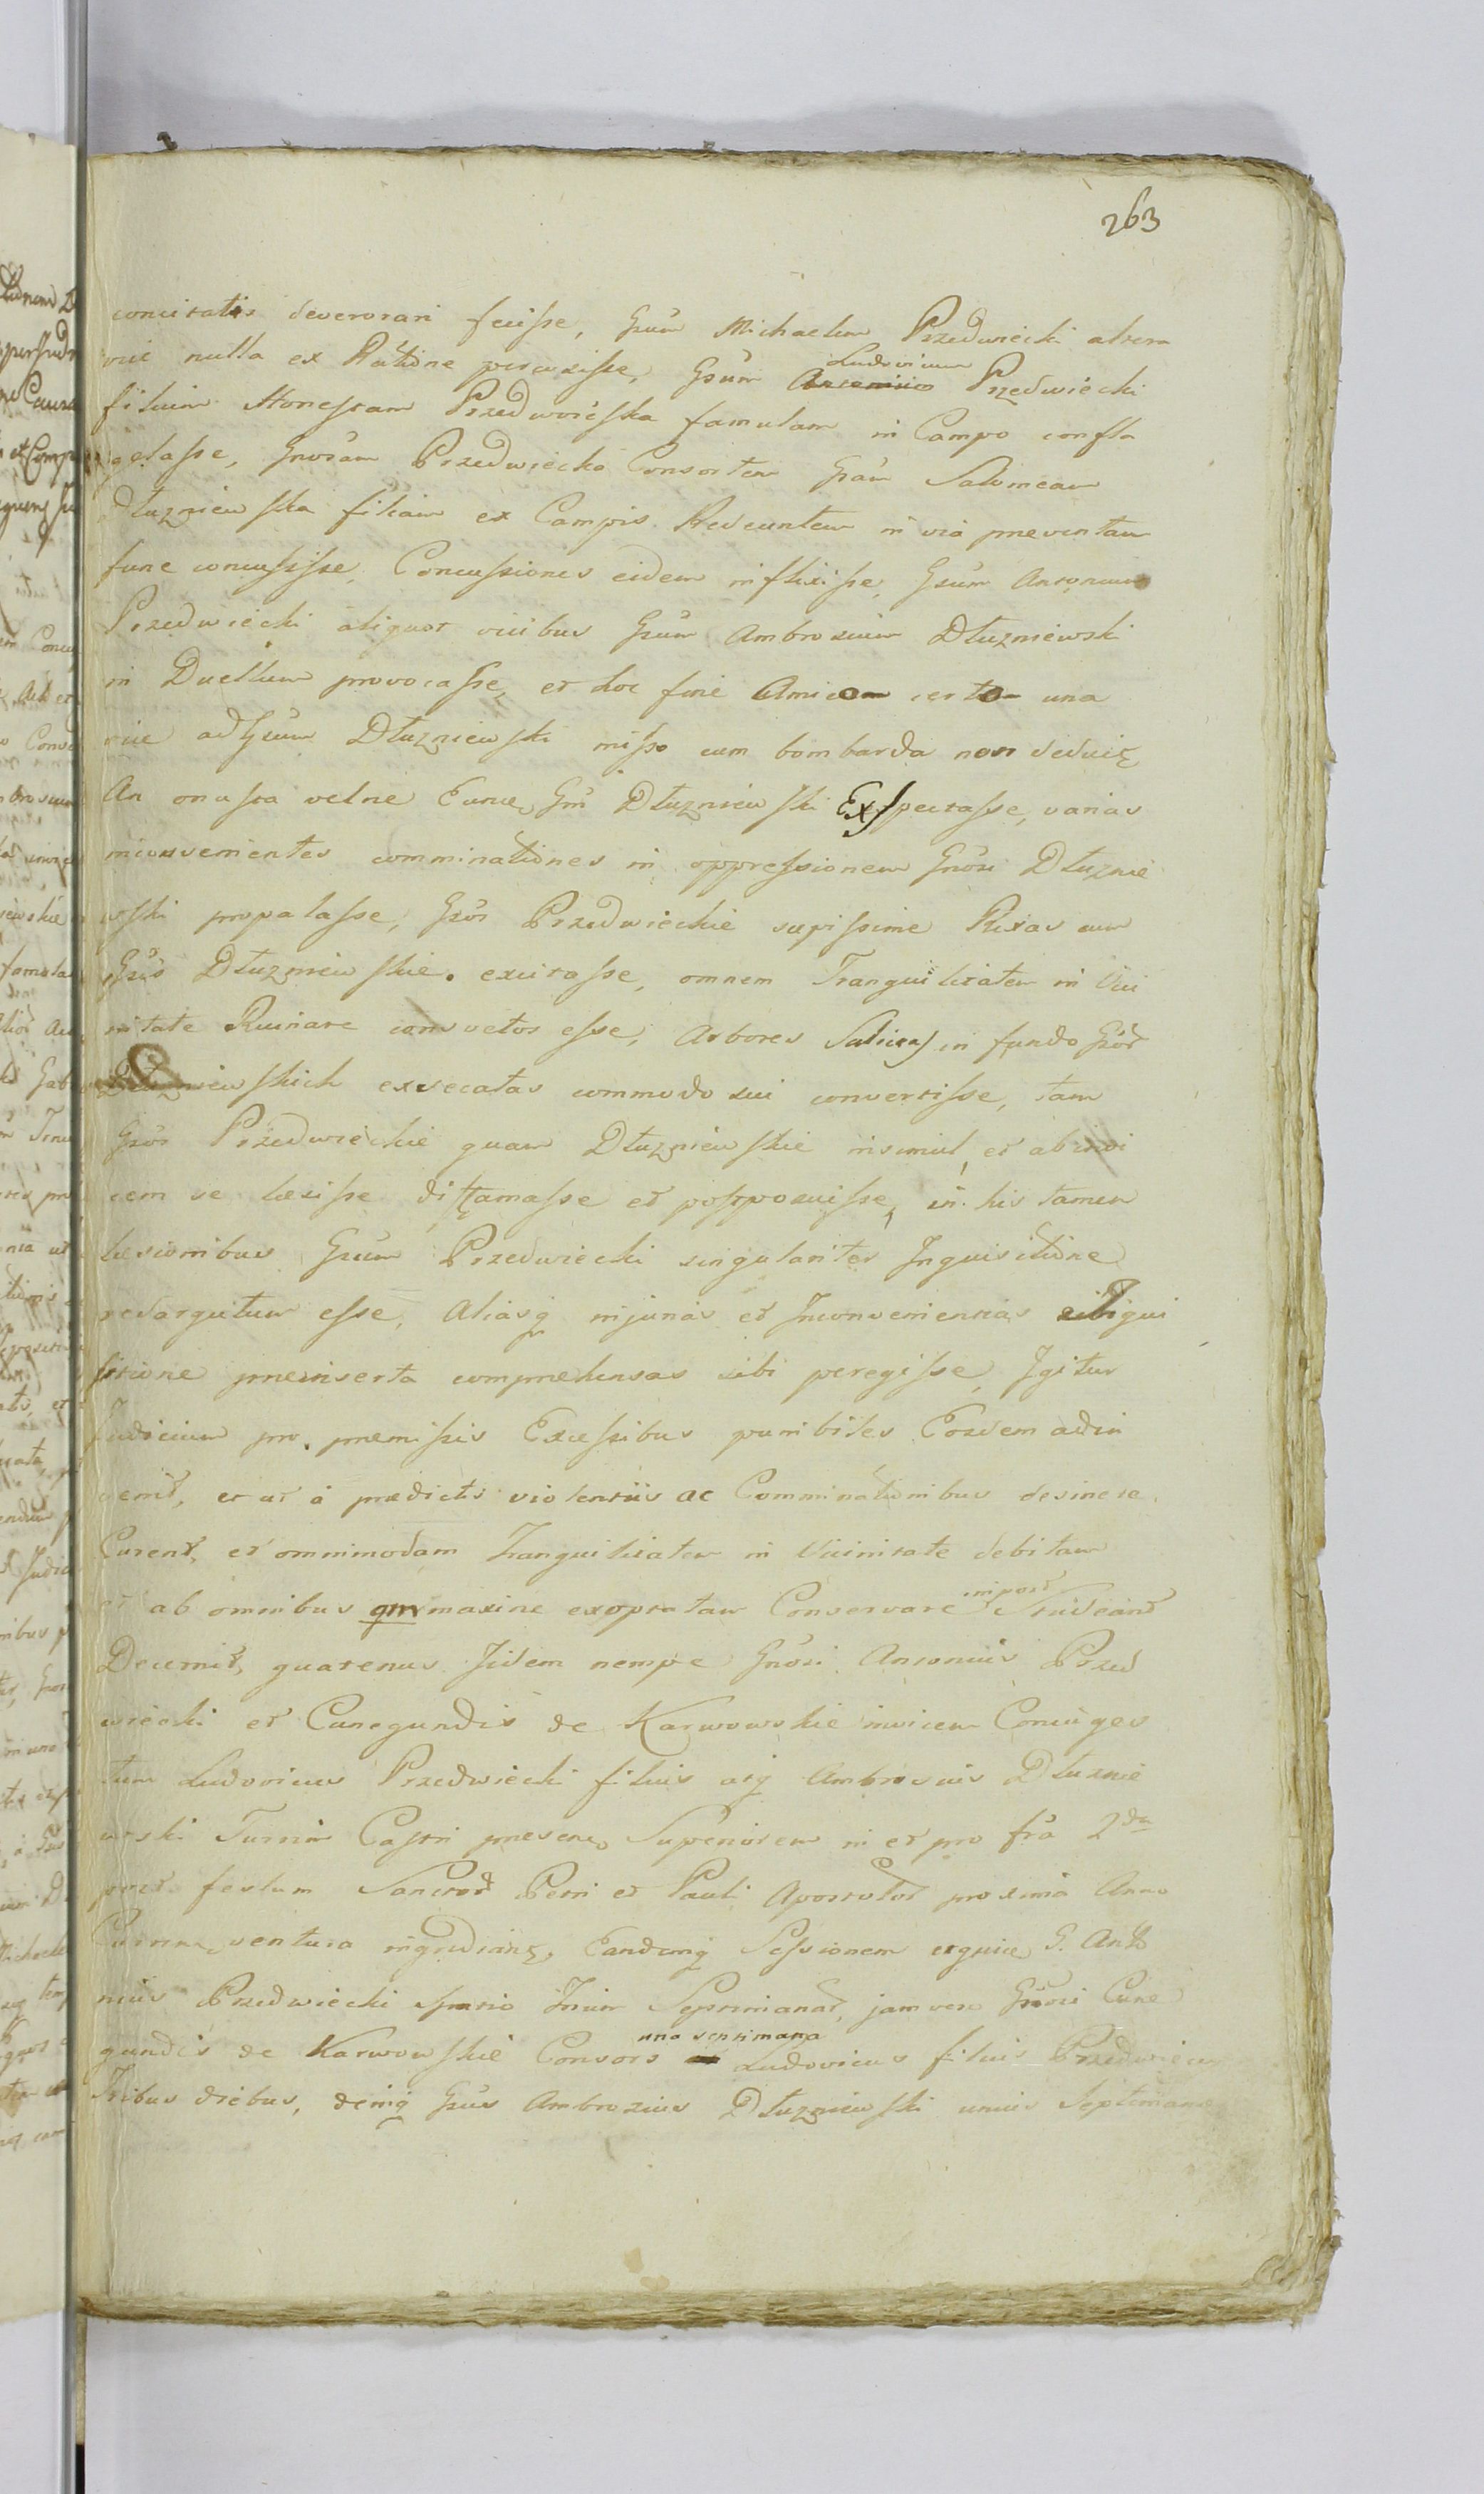 263
concitatis deverorari fecisse, Gsum Michaelem Przedwiecki altera
vice nulla ex Ratione percussisse, Gsum Ludovicum Przedwiecki
filium Honestam Przedworska famulam in Campo confla
gelasse, Gnosam Przedwiecka Consortem Gsam Salomeam
Dłuzniewska filiam ex Campis Redeuntem in via preventam
fune concussisse, Concussiones eidem inflixisse, Gsum Antonium
Przedwiecki aliquot vicibus Gsum Ambrosium Dłuzniewski
in Duellum provocasse, et hoc fine Amico certo una
vice ad Gsum Dłuzniewski misso cum bombarda non
An onusta velne Gm Dłuzniewski Exspectasse, varias
inconvenientes comminationes in oppressionem Gnosi Dłuznie
wski propalasse, Gsos Przedwieckie sæpissime Rixas cum
Gsis Dłuzniewskie excitasse, omnem Tranquilitatem in Vici
nitate Ruinare consvetos esse, Arbores Salices in fundo Gsor
Dłuzniewskich exsecatas commodo sui convertisse, tam
Gsos Przedwieckie quam Dłuzniewskie insimul et abinvi
cem se læsisse diffamasse et postposuisse, in his tamen
læsionibus Gsum Przedwiecki singulariter Inquisitione
redargutum esse, Aliasq injurias et Inconvenientias
sitione preinserta comprehensas sibi peregisse, Igitur
Judicium pro premissis Excessibus punibiles Eosdem adin
venit, et ut a prædictis violentiis ac Comminationibus desinere
Curent, et omnimodam Tranquilitatem in Vicinitate debitam
et ab omnibus qm maxime exoptatam Conservare in post Studeant
Decernit, quatenus Iidem nempe Gnosi Antonius Przed
wiecki et Cunegundis de Karwowskie invicem Coniuges
tum Ludovicus Przedwiecki filius atq Ambrosius Dłuznie
wski Turrim Castri presen Superiorem in et pro fra 2da
post festum Sanctor Petri et Pauli Apostolor proxima Anno
Curren ventura ingrediant, Eandemq Sessionem G. Anto
nius Przedwiecki spatio Trium Septimanar, jam vero Gnosi Cune
gundis de Karwowskie Consors una septimana Ludovicus filius Przedwiecki
Tribus diebus, deniq Gsus Ambrosius Dłuzniewski unius Septimanæ